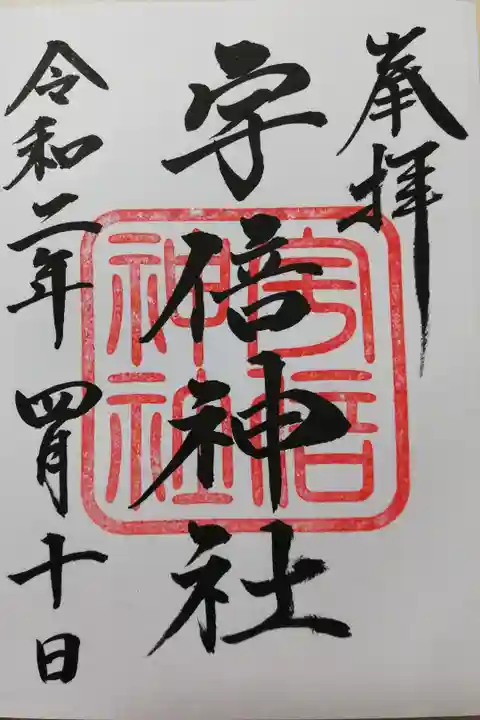 奉拝
宇倍神社
宇倍神社
令和二年四月十日